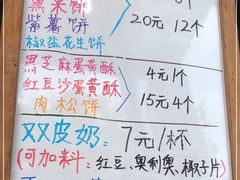 黑米饼
紫薯饼
20元 12个
椒盐花生饼
黑芝麻蛋黄酥
4元1个
红豆沙蛋黄酥
15元4个
肉松饼
双皮奶：7元/杯
(可加料：红豆、奥利奥、椰子片)